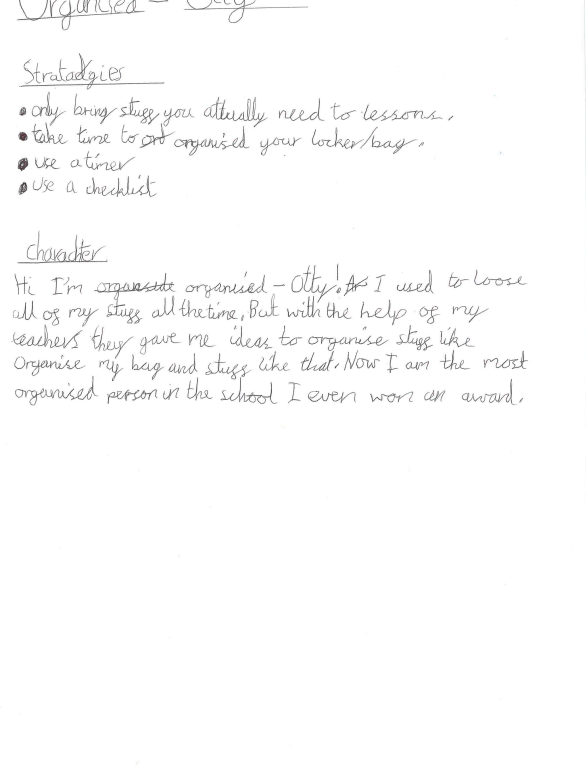 Organised – Otty
Stratadgies
• only bring stuff you atturally need to lessons.
• take time to ort organised your locker/bag.
• use a timer
• use a checklist
character
Hi I'm organsite organised – Otty! As I used to loose
all of my stuff all the time, But with the help of my
teachers they gave me ideas to organise stuff like
Organise my bag and stuff like that. Now I am the most
organised person in the school I even won an award.